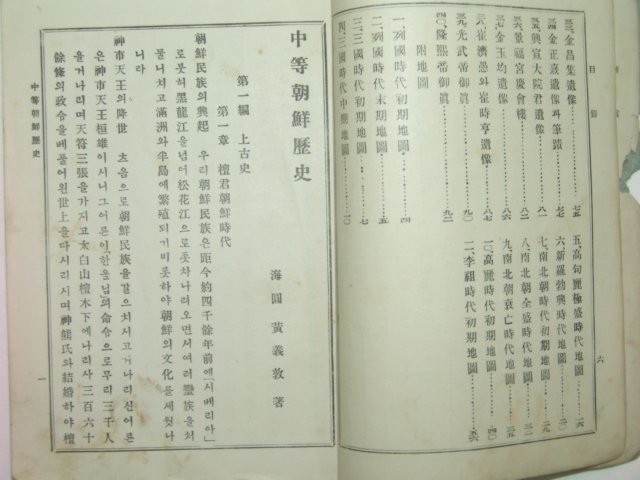 目錄
三三、金昌集遺像……七五
三四、金正熹遺像과筆蹟……七七
三五、興宣大院君遺像……八一
三六、景福宮慶會樓……八二
三七、金玉均遺像……八六
三八、崔濟愚와崔時亨遺像……八七
三九、光武帝御眞……九一
四〇、隆熙帝御眞……九二
附地圖
一、列國時代初期地圖……四
二、列國時代末期地圖……五
三、三國時代初期地圖……七
四、三國時代中期地圖……一〇
五、高句麗極盛時代地圖……一六
六、新羅勃興時代地圖……二〇
七、南北朝時代初期地圖……二九
八、南北朝全盛時代地圖……三二
九、南北朝衰亡時代地圖……三五
一〇、高麗時代初期地圖……四〇
一一、李祖時代初期地圖……五六
六
中等朝鮮歷史
海圓 黃義敦 著
第一編 上古史
第一章 檀君朝鮮時代
朝鮮民族의興起 우리朝鮮民族은距今約四千餘年前에「시베리아」
로붓허黑龍江을넘어松花江으로좃차나려오면서여러蠻族을처
물니치고滿洲와半島에繁殖되기비롯하야朝鮮의文化를세웟나
니라
神市天王의降世 초음으로朝鮮民族을걸으치시고거나리신어른
은神市天王桓雄이시니그어른이한울님의命令으로무리三千人
을거나리며天符三張을가지고太白山檀木下에나리사三百六十
餘條의政令을베풀어원世上을다시리시며神熊氏와結婚하야檀
中等朝鮮歷史
一